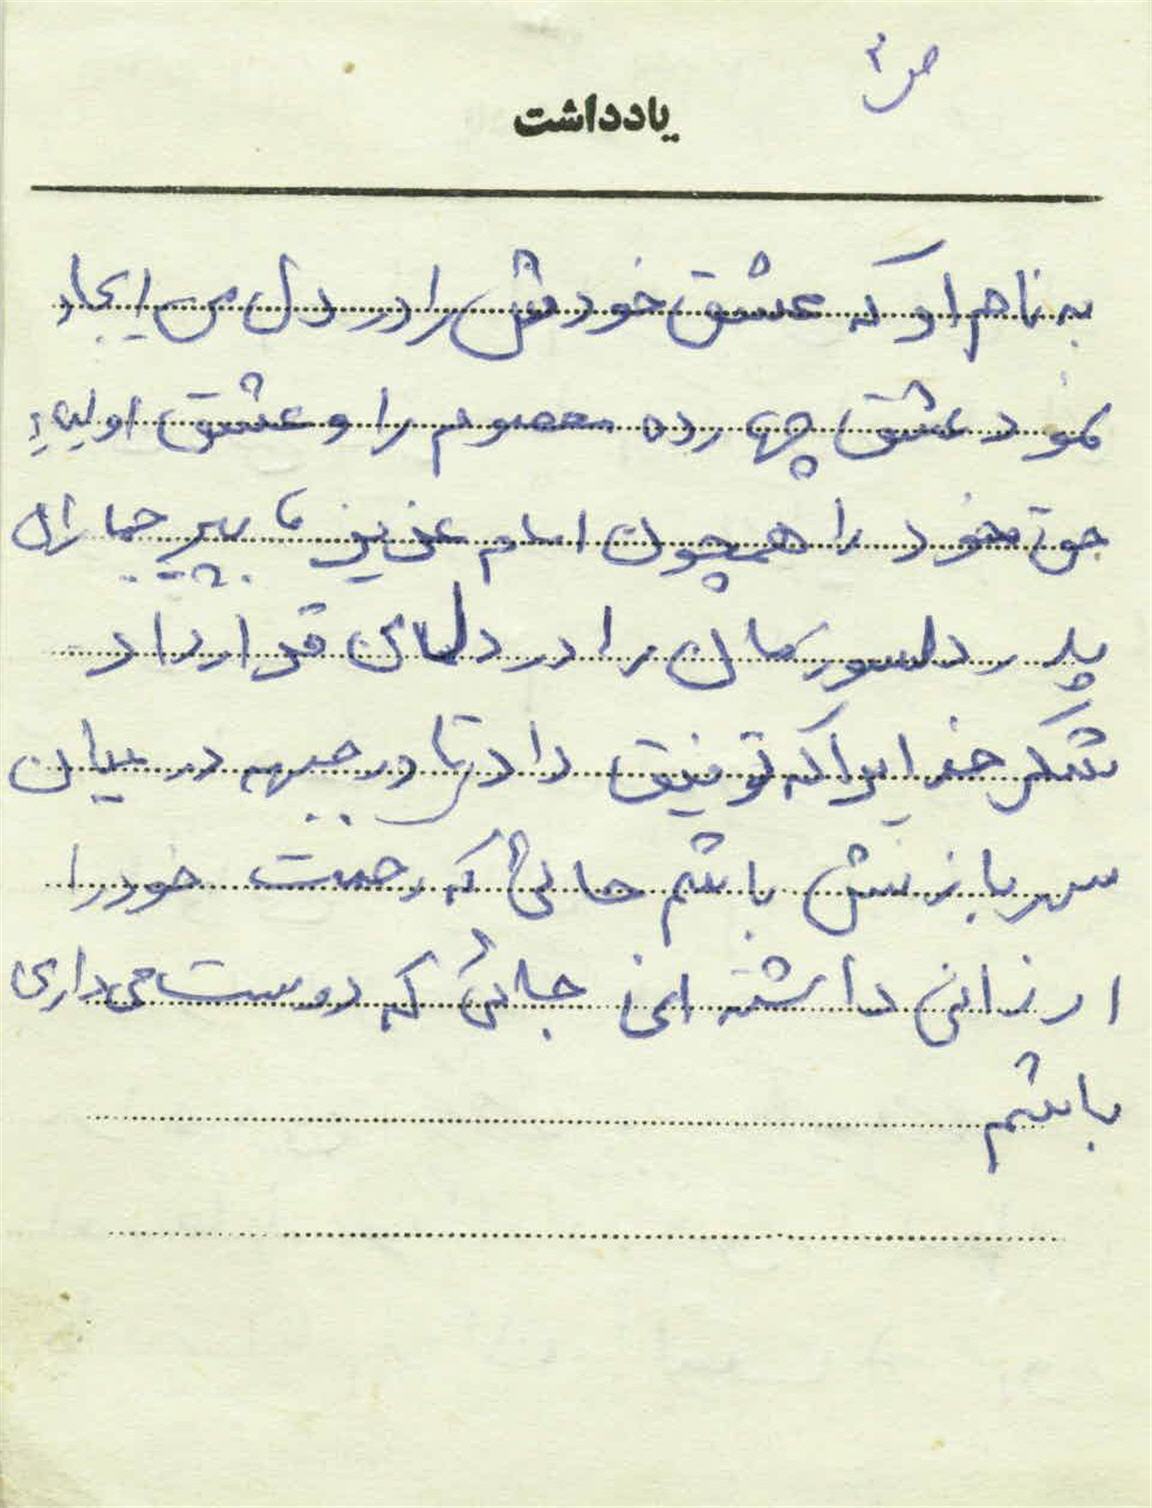 ص ۳
یادداشت
به نام او که عشق خودش را در دل من ایجاد
نمود عشق چهارده معصوم را و عشق اولیاء
حق خود را همچون امام عزیز ما پیر جماران
پدر دلسوزمان را در دلمان قرار داد
شکر خدایرا که توفیق داد تا در جبهه در میان
سربازنش باشم جائی که رحمت خود را
ارزانی داشته ای جائی که دوست می داری
باشم